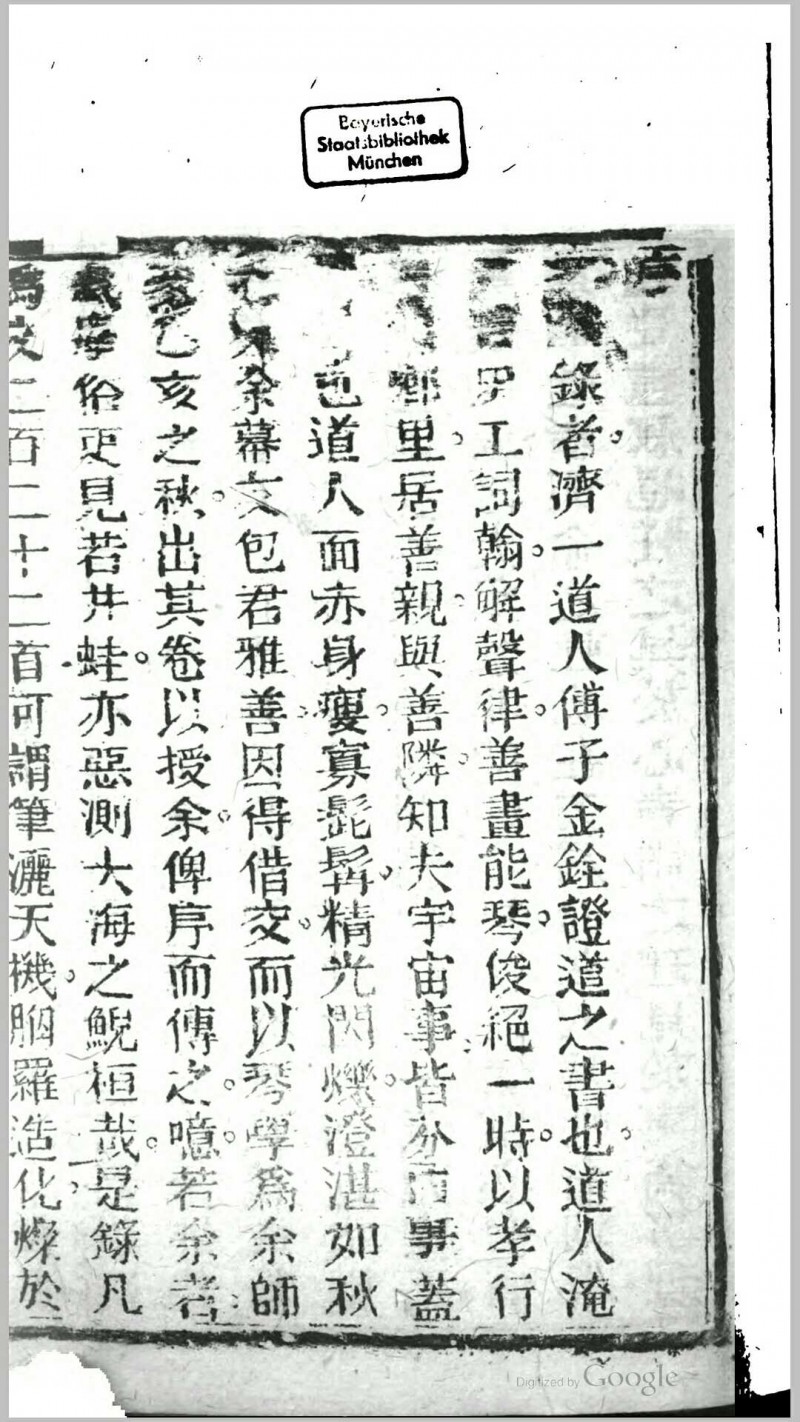 Bayerische
Staatsbibliothek
München
序
錄者濟一道人傅子金銓證道之書也道人淹
工詞翰解聲律善畫能琴俊絕一時以孝行
鄉里居善親與善隣知夫宇宙事皆分內事蓋
也道人面赤身瘦寡髭髯精光閃爍澄湛如秋
余幕友包君雅善因得借交而以琴學爲余師
乙亥之秋出其卷以授余俾序而傳之噫若余者
俗吏見若井蛙亦惡測大海之鯢桓哉是錄凡
爲文二百二十二首可謂筆灑天機胸羅造化燦於
Digitized by Google